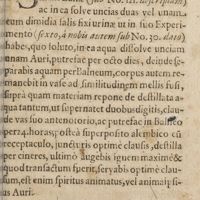 ac in ea solve uncias duas vel unam
eum dimidia salis fixi urinæ ut in suo Experi-
mento (sexto, à nobis autem sub No. 30. dato)
habes, quo soluto, in ea aqua dissolve unciam
unam Auri, putrefac per octo dies, deinde se-
parabis aquam per Balneum, corpus autem re-
manebit in vase ad similitudinem mellis fusi,
suprà quam materiam repone de destillata a-
qua tantum, ut supernatet duobus digitis, clau-
de vas suo antenotorio, ac putrefac in Balneo
per 24. horas; posteà superposito alembico cũ
receptaculo, juncturis optimè clausis, destilla
per cineres, ultimò augebis ignem maximè &
quod transactum fuerit, servabis optimè clau-
sum, est enim spiritus animatus, vel anima ip-
sius Auri.